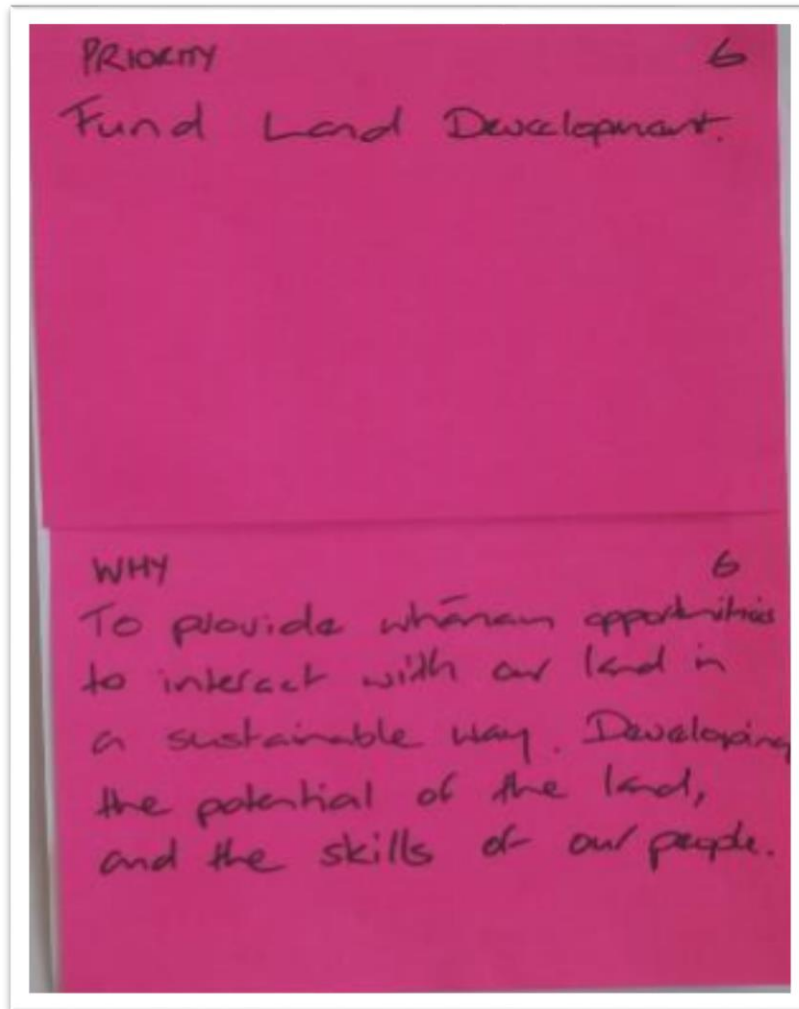 PRIORITY 6
Fund Land Development.
WHY 6
To provide whānau opportunities
to interact with our land in
a sustainable way. Developing
the potential of the land,
and the skills of our people.